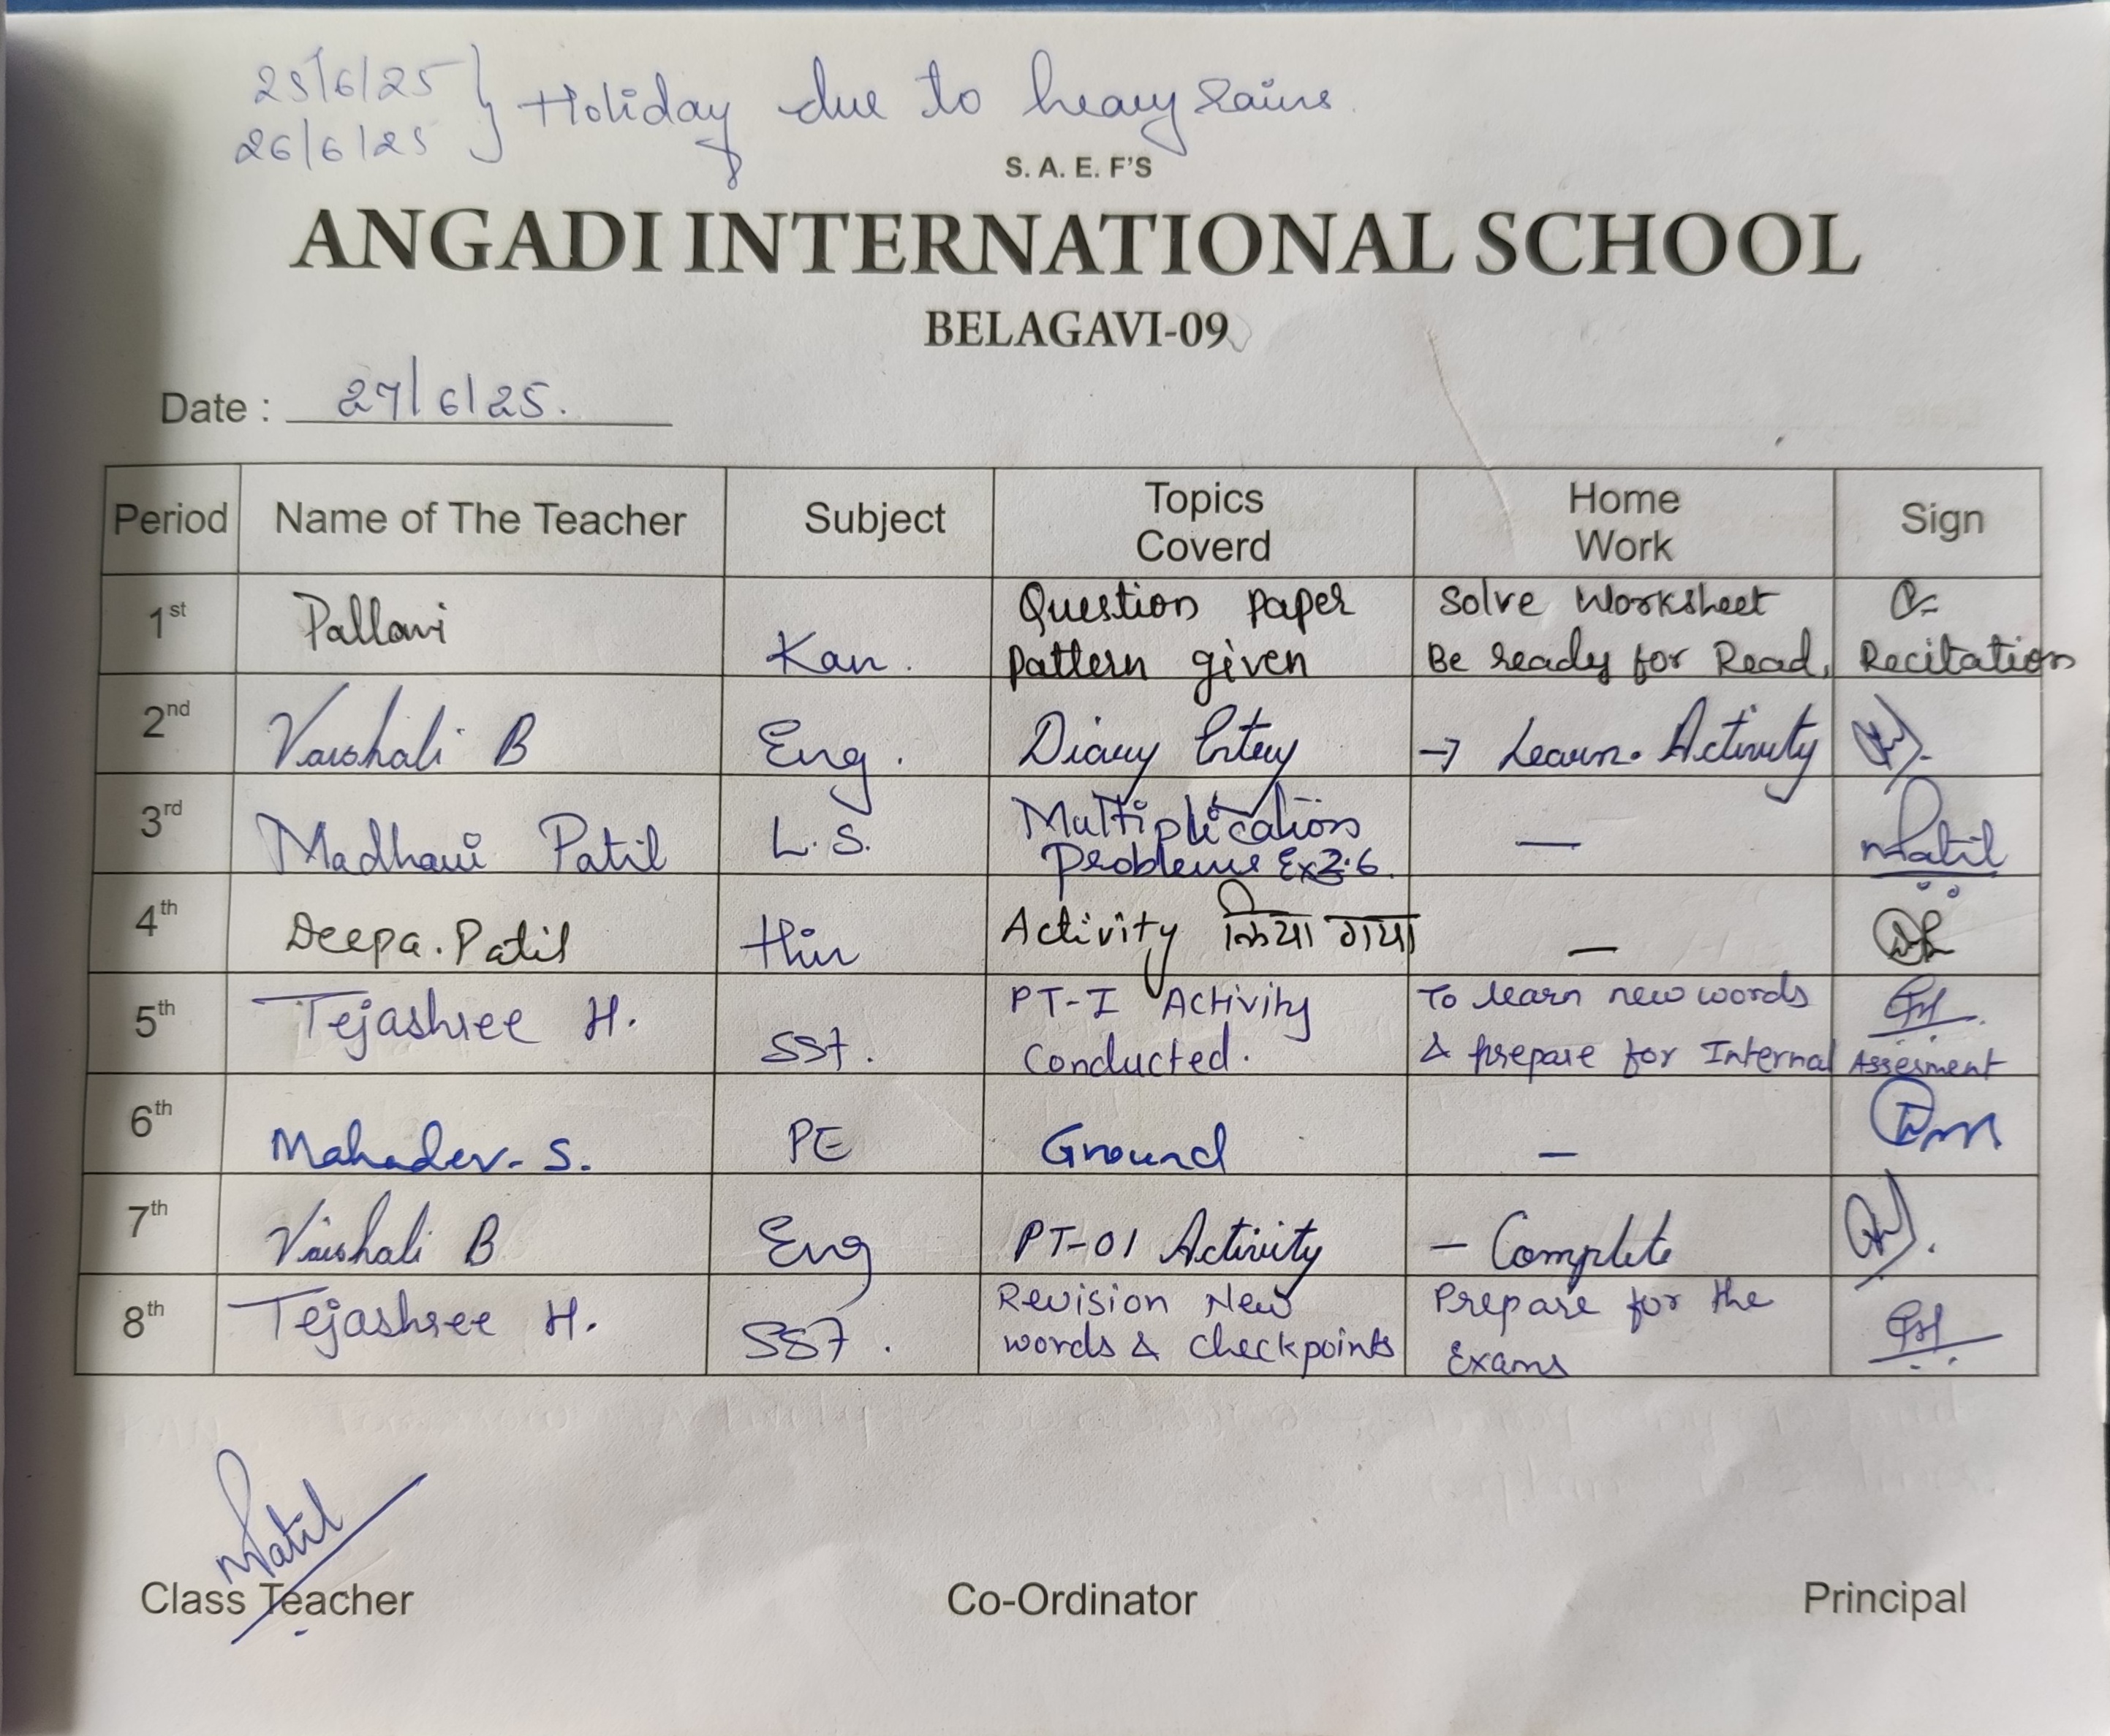 25/6/25 } Holiday due to heavy rains.
26/6/25
S. A. E. F'S
ANGADI INTERNATIONAL SCHOOL
BELAGAVI-09
Date : 27/6/25.
Period Name of The Teacher Subject Topics Coverd Home Work Sign
1st Pallavi Kan. Question paper Solve Worksheet
pattern given Be ready for Read, Recitation
2nd Vaishali B Eng. Diary Entry → Learn. Activity
3rd Madhavi Patil L.S. Multiplication — MPatil
Problems Ex 2.6
4th Deepa. Patil Hin Activity किया गया —
5th Tejashree H. SST. PT-I Activity To learn new words
Conducted. & prepare for Internal Assesment
6th Mahadev. S. PE Ground —
7th Vaishali B Eng PT-01 Activity - Complete
8th Tejashree H. SST. Revision New Prepare for the
words & checkpoints Exams
MPatil
Class Teacher Co-Ordinator Principal